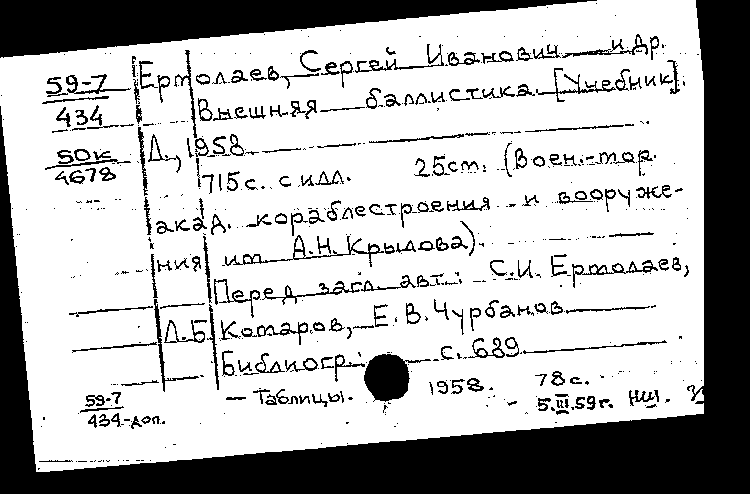 59-7 Ермолаев, Сергей Иванович и др.
434 Внешняя баллистика. [Учебник].
50к Л., 1958
4678 715с. с илл. 25см. (Воен.-мор.
акад. кораблестроения и вооруже-
ния им А.Н. Крылова).
Перед загл. авт.: С.И. Ермолаев,
Л.Б. Комаров, Е.В. Чурбанов
Библиогр.: с. 689.
59-7 — Таблицы. 1958. 78с.
434-доп. - 5.III.59г.